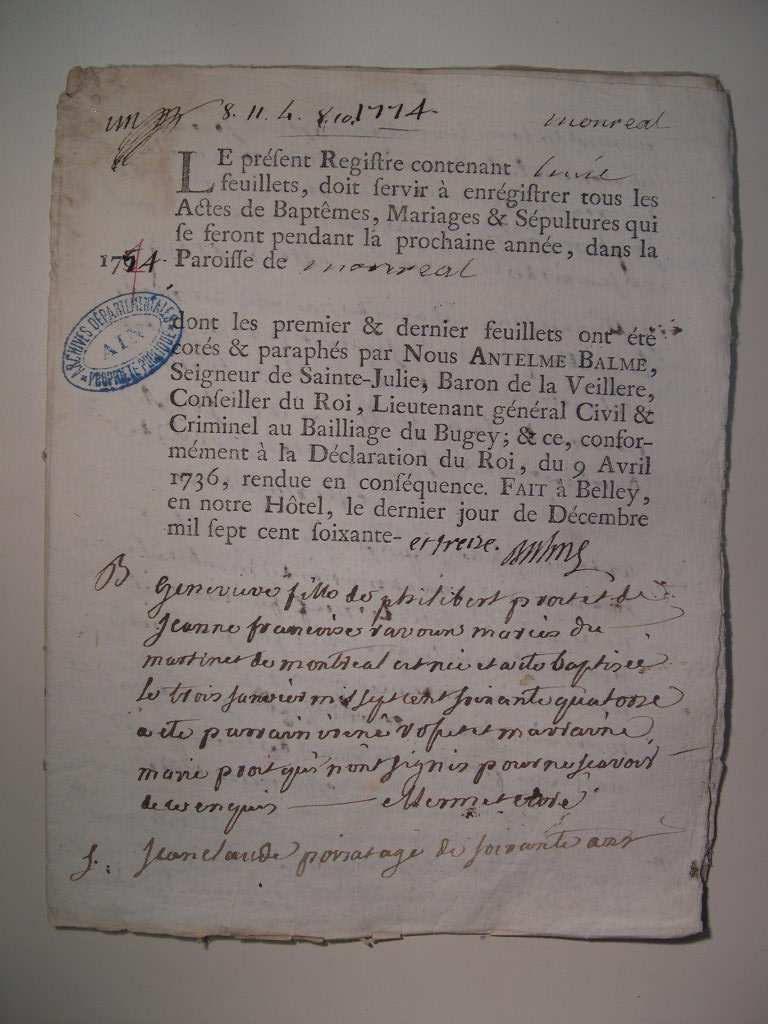 8. 11. 4. 8.10. 1774.
monreal
LE préſent Regiſtre contenant
feuillets, doit ſervir à enrégiſtrer tous les
Actes de Baptêmes, Mariages & Sépultures qui
ſe ſeront pendant la prochaine année, dans la
1774. Paroiſſe de monreal
dont les premier & dernier feuillets ont été
cotés & paraphés par Nous ANTELME BALME,
Seigneur de Sainte-Julie, Baron de la Veillere,
Conſeiller du Roi, Lieutenant général Civil &
Criminel au Bailliage du Bugey; & ce, confor-
mément à la Déclaration du Roi, du 9 Avril
1736, rendue en conſéquence. FAIT à Belley,
en notre Hôtel, le dernier jour de Décembre
mil ſept cent ſoixante- et treize. Balme
ARCHIVES DÉPARTEMENTALES
AIN
PROPRIÉTÉ PUBLIQUE
B Genevieve fille de philibert prost et de
Jeanne francoise ravoux mariés du
martinet de montreal est née et a ete baptisee
le trois janvier mil sept cent soixante quatorze
a ete parrain et marraine
marie prost qui n'ont signés pour ne scavoir
de ce enquis
S. Jean claude agé de soixante ans